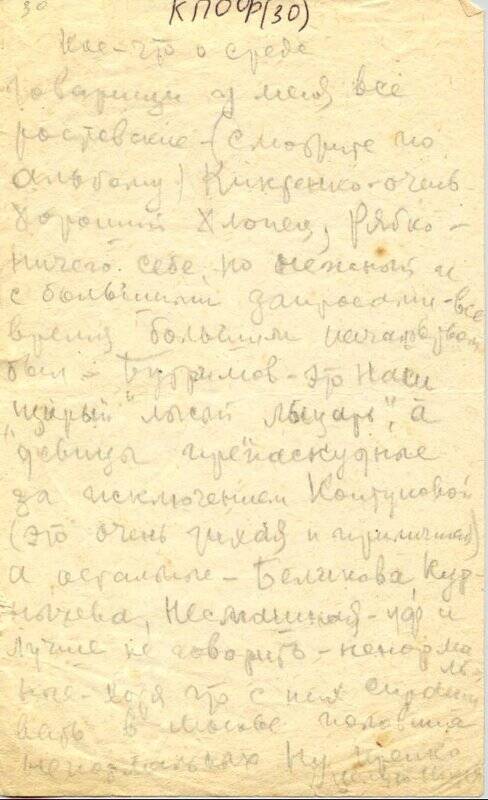 30
КПОФ(30)
Кое-что о среде
товарищи у меня все
ростовские - (смотрите по
альбому) Киктенко - очень
хороший хлопец, Рябко -
ничего себе, но нежный и
с большими запросами - все
время большим начальством
был - Бутримов - это наш
"щирый" "лысый лыцарь", а
"девицы" препаскудные
за исключением Колтуновой
(это очень тихая и приличная)
а остальные - Беликова, Кур-
нычева, Несмашная - уф и
лучше не говорить - ненорма
ль-
ные - хотя что с них спраши
вать в Москве половина
ненормальных Ну крепко
целую